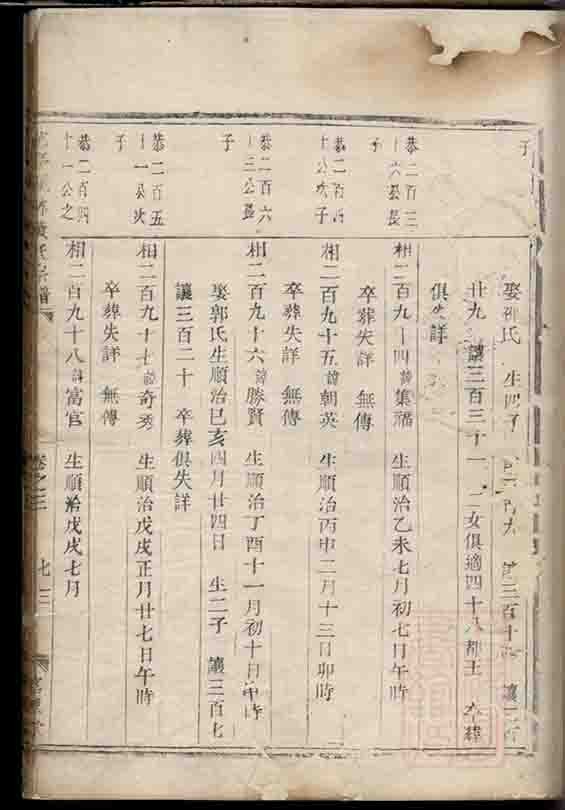 子
娶 氏 生四子 三百十 讓三百
廿九 讓三百三十一 二女俱適四十八都王 卒葬
俱失詳
恭二百三
十六公長
子
相二百九十四諱集福 生順治乙未七月初七日午時
卒葬失詳 無傳
恭二百四
十公次子
相二百九十五諱朝英 生順治丙申二月十三日卯時
卒葬失詳 無傳
恭二百六
十三公長
子
相二百九十六諱勝賢 生順治丁酉十一月初十日申時
娶郭氏生順治己亥四月廿四日 生二子 讓三百七
讓三百二十 卒葬俱失詳
恭二百五
十一公次
子
相二百九十七諱奇秀 生順治戊戌正月廿七日午時
卒葬失詳 無傳
恭二百四
十一公之
相二百九十八諱富官 生順治戊戌七月
氏宗譜 卷之三 七三